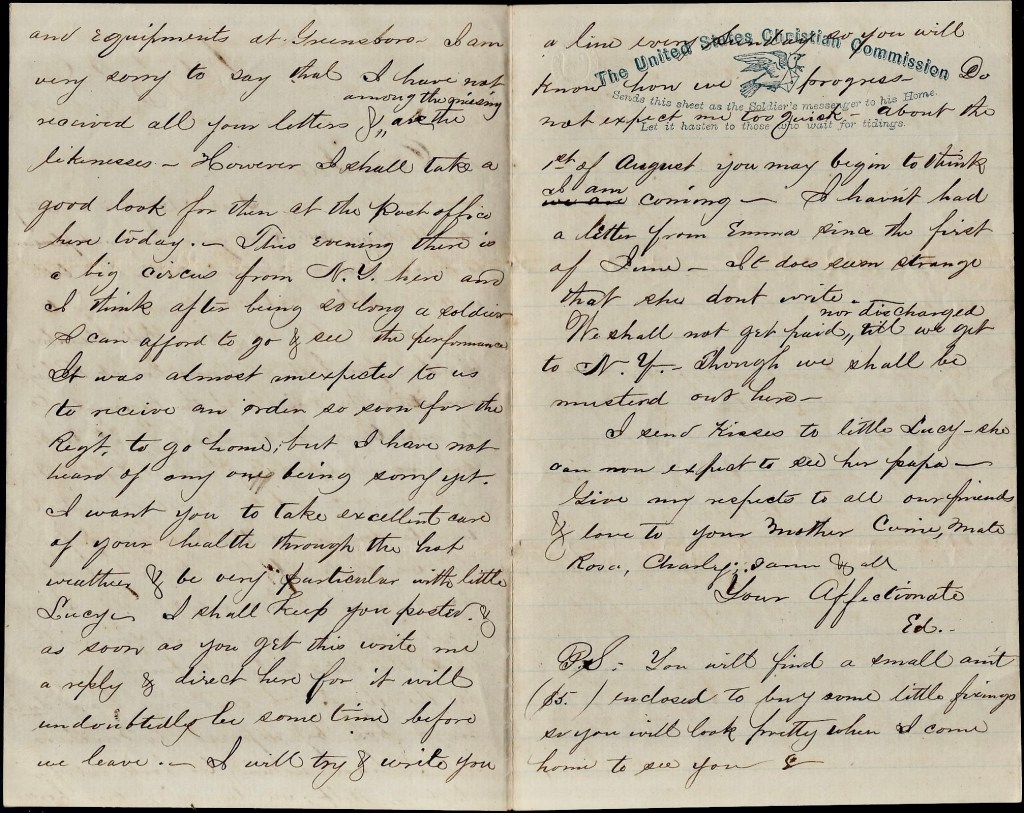 and Equipments at Greensboro - I am
very sorry to say that I have not
among the missing
received all your letters & " are the
likenesses - However I shall take a
good look for them at the Post office
here today. - This Evening there is
a big circus from N.Y. here and
I think after being so long a soldier
I can afford to go & see the performance
It was almost unexpected to us
to receive an order so soon for the
Regt. to go home; but I have not
heard of any one being sorry yet.
I want you to take excellent care
of your health through the hot
weather & be very particular with little
Lucy - I shall keep you posted. &
as soon as you get this write me
a reply & direct here for it will
undoubtedly be some time before
we leave. - I will try & write you
The United States Christian Commission
Sends this sheet as the Soldier's messenger to his Home.
Let it hasten to those who wait for tidings.
a line every so you will
know how we progress - Do
not expect me too quick - about the
1st of August you may begin to think
I am
we are coming - I havn't had
a letter from Emma since the first
of June - It does seem strange
that she dont write -
nor discharged
We shall not get paid, " till we get
to N.Y. - Though we shall be
musterd out here -
I send Kisses to little Lucy - she
can now expect to see her papa -
Give my respects to all our friends
& love to your Mother Mate
Rosa, Charley, & all
Your Affectionate
Ed. -
P.S. - You will find a small am't
($5. ) enclosed to buy some little fixings
so you will look pretty when I come
home to see you